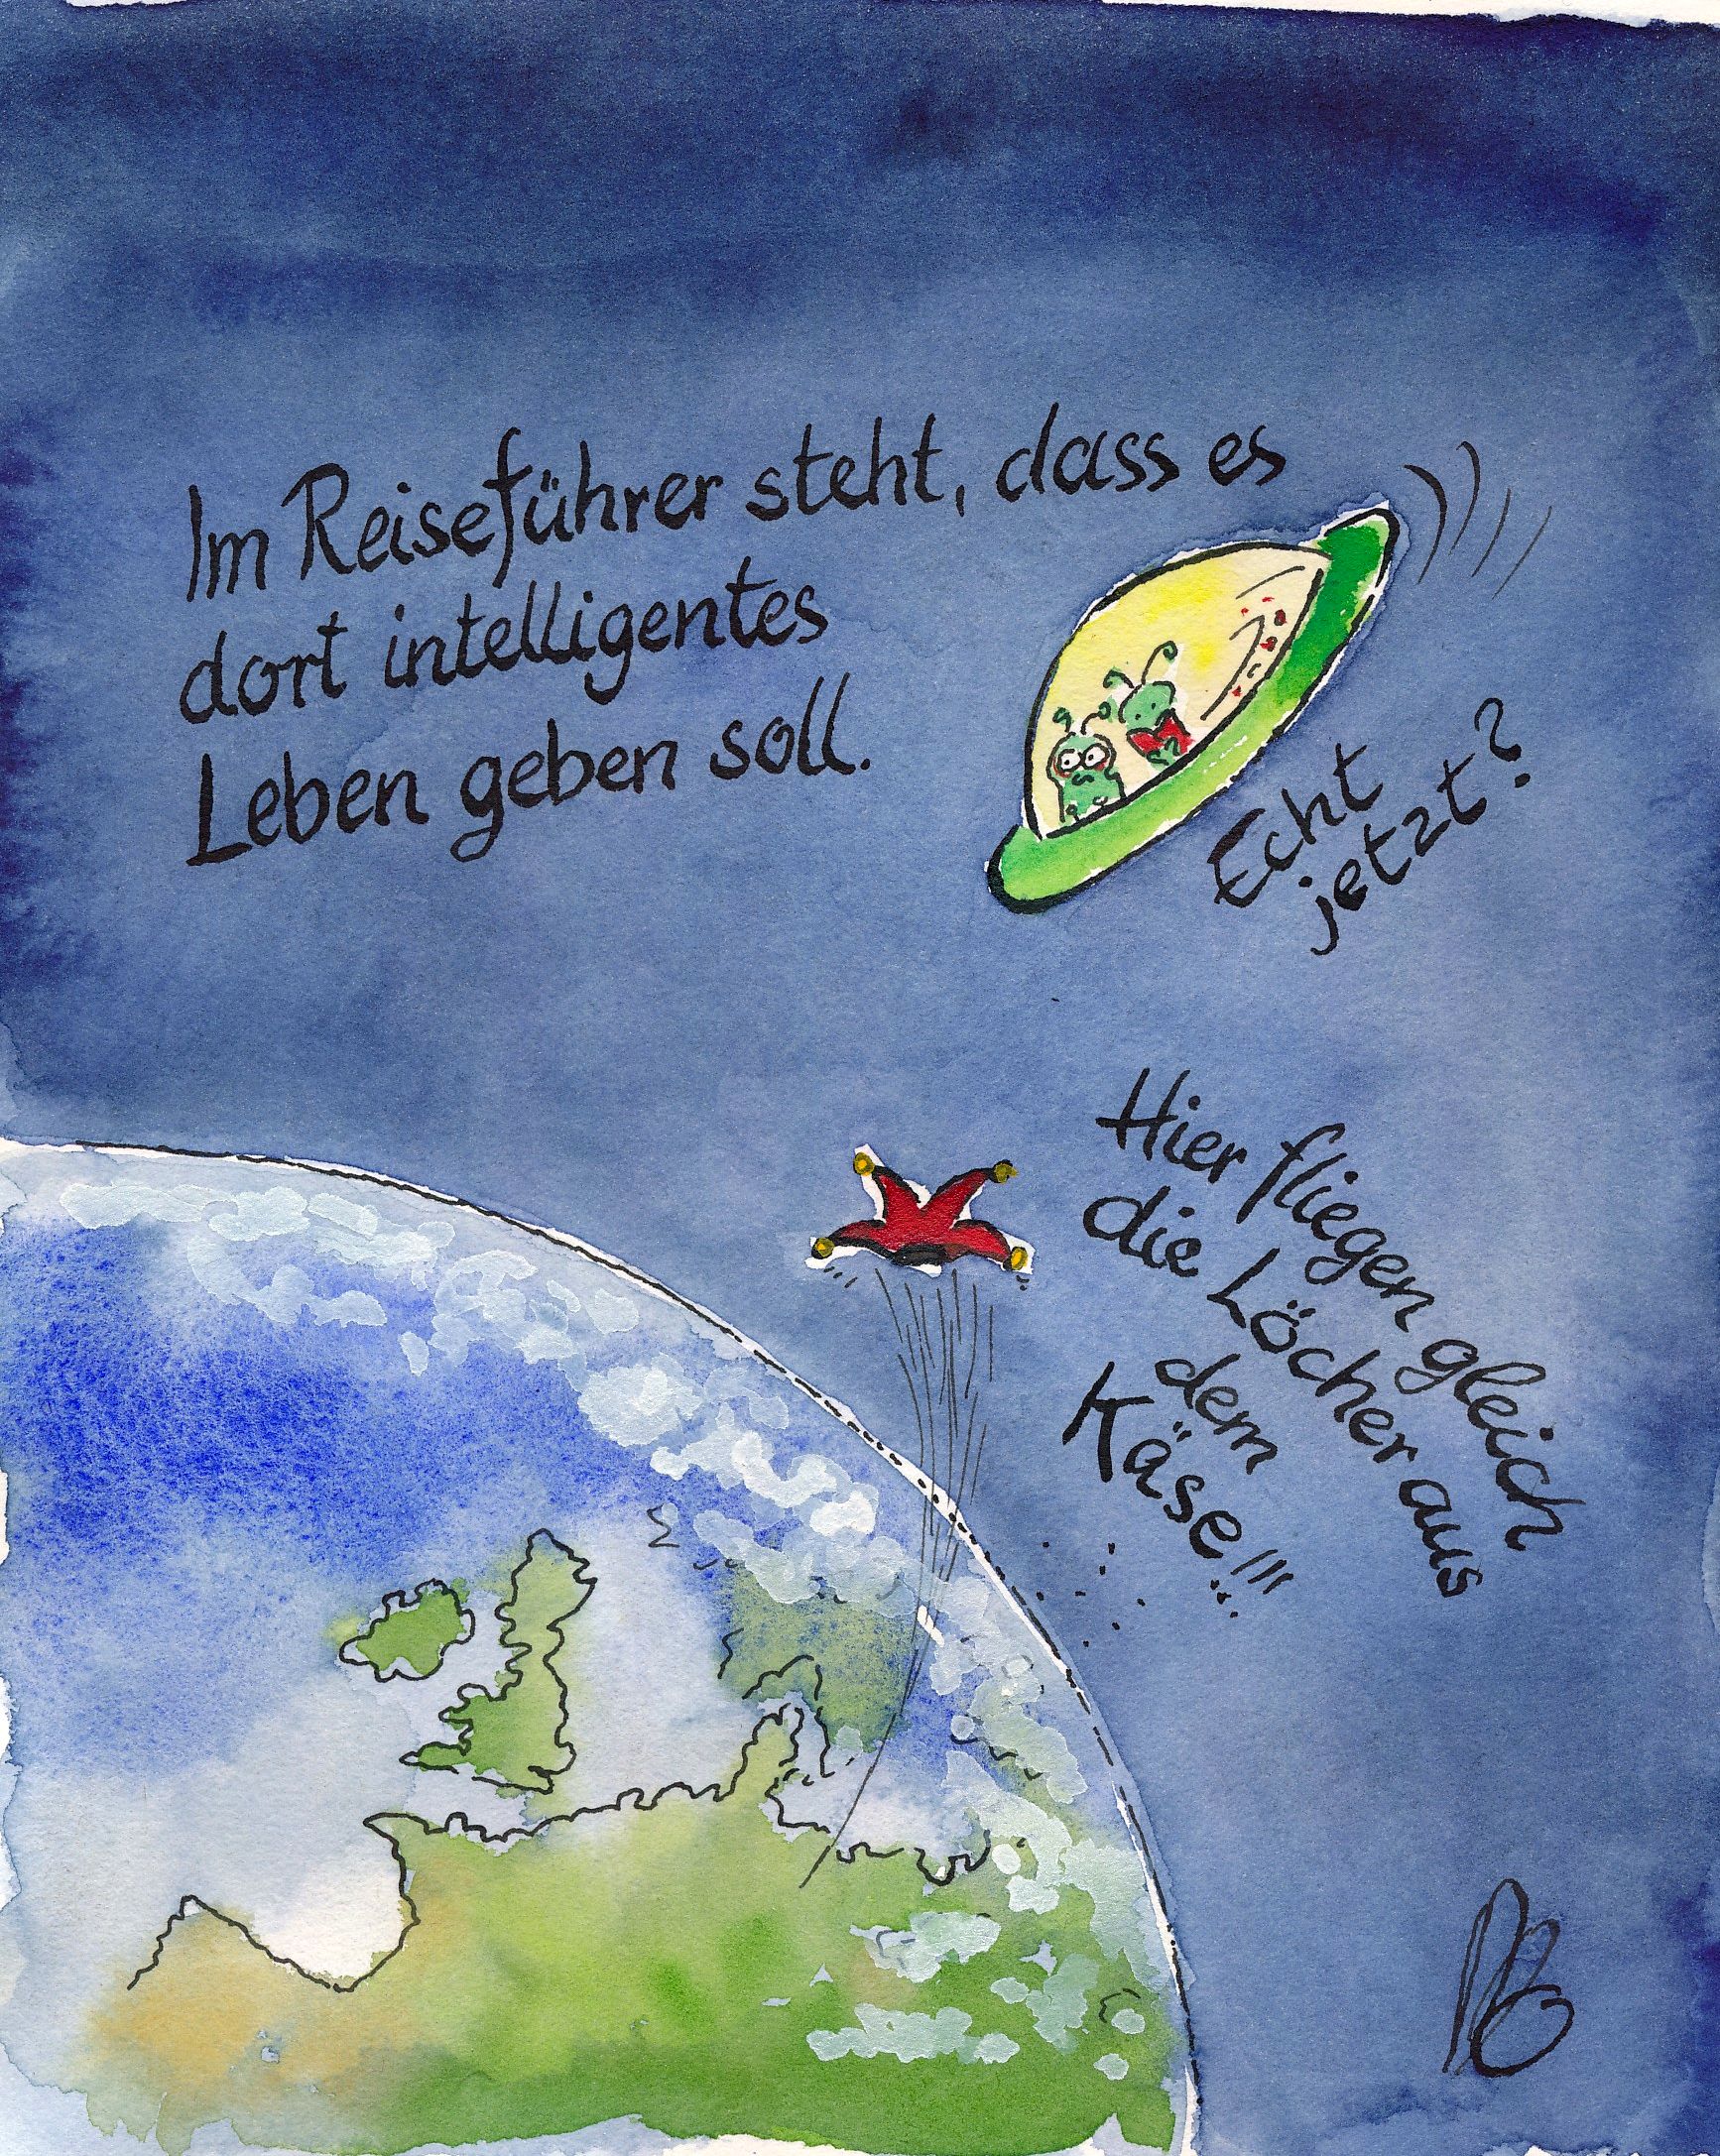 Im Reiseführer steht, dass es
dort intelligentes
Leben geben soll.
Echt
jetzt?
Hier fliegen gleich
die Löcher aus
dem
Käse!!!